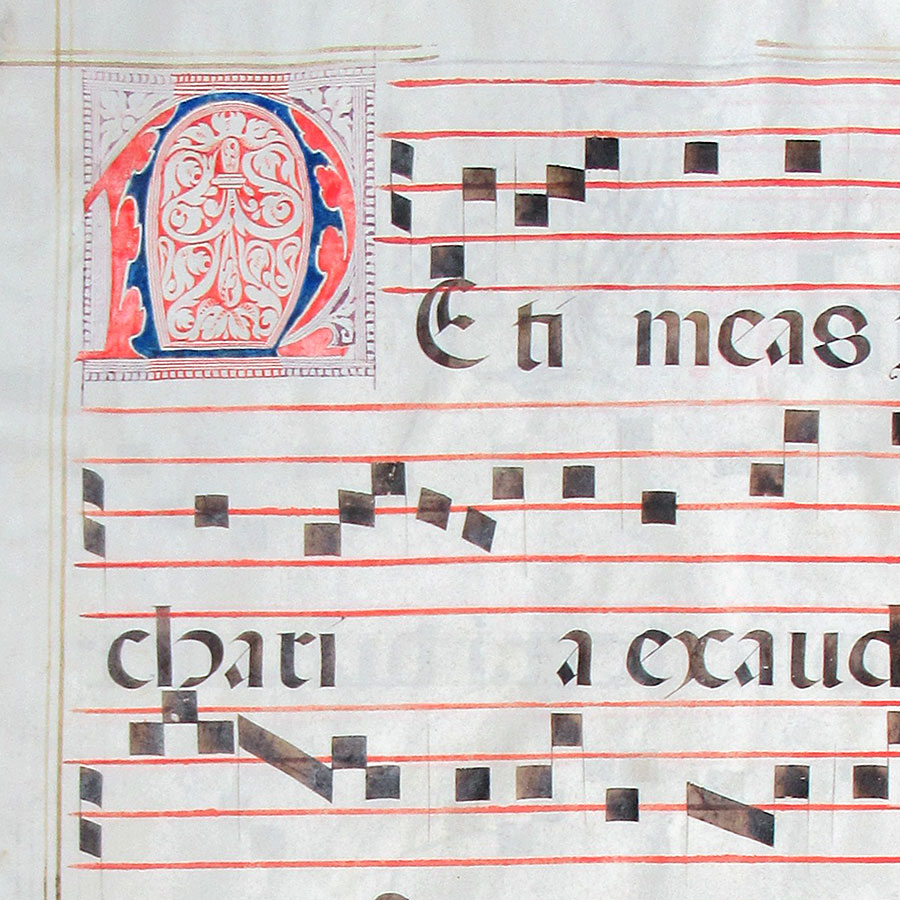 NE ti meas
chari a exaud